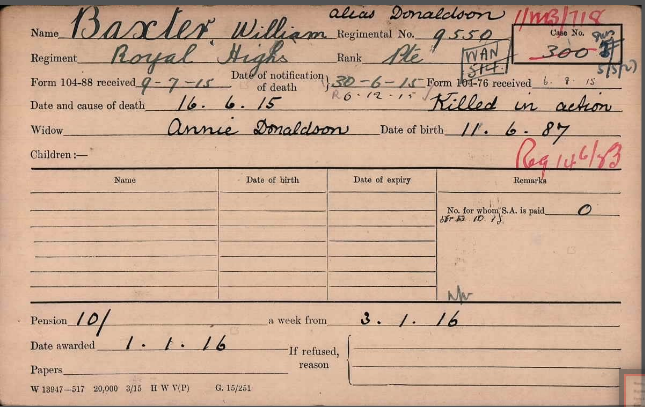 alias Donaldson 1/MB/718
Name Baxter William Regimental No. 9550 Case No. 300
Regiment Royal Highs Rank Pte WAN
Form 104-88 received 9-7-15 Date of notification of death 30-6-15 Form 104-76 received 6. 8. 15
6-12-15
Date and cause of death 16. 6. 15 Killed in action
Widow Annie Donaldson Date of birth 11. 6. 87
Children:—
Name Date of birth Date of expiry Remarks
No. for whom S.A. is paid 0
Pension 10/ a week from 3. 1. 16
Date awarded 1. 1. 16 If refused, reason
Papers
W 13947—517 20,000 3/15 H W V(P) G. 15/251